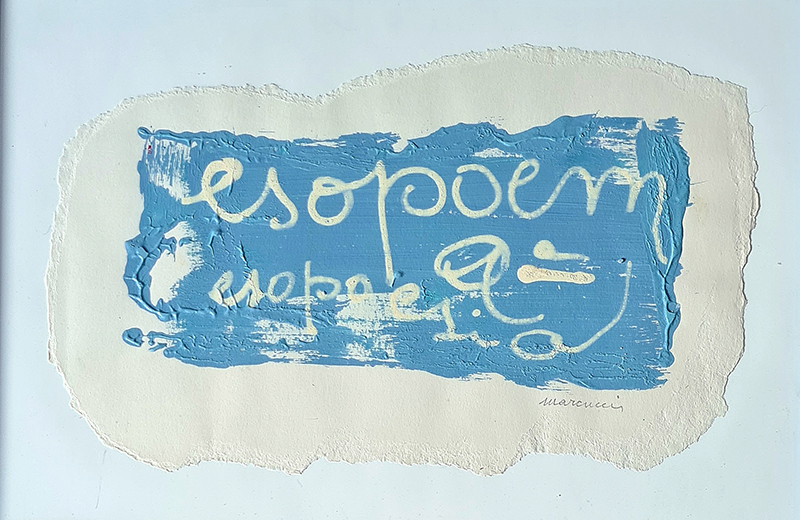 esopoem
esopoes
marcucci